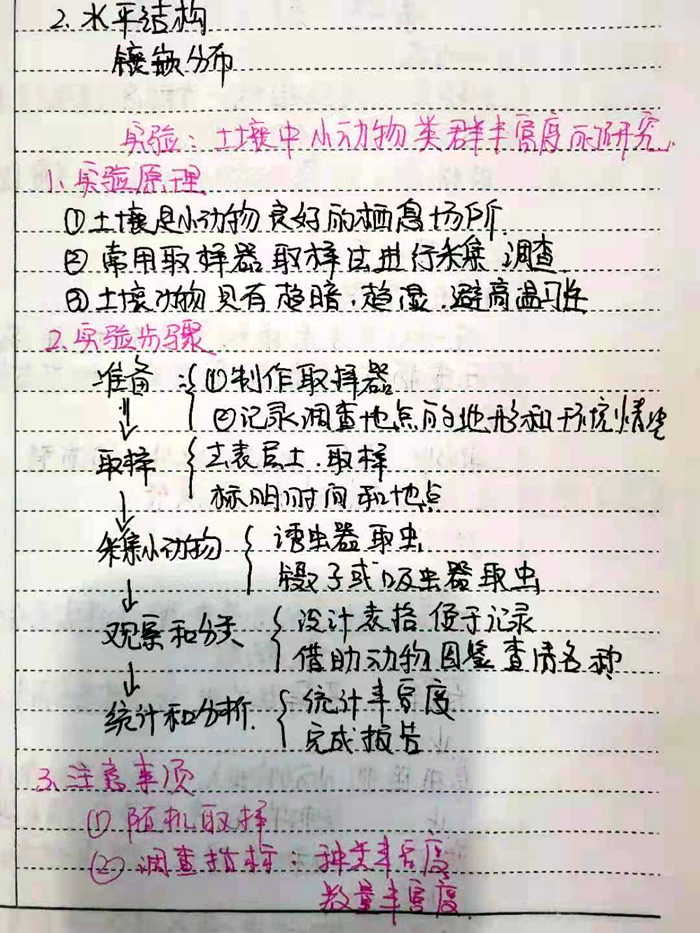 2. 水平结构
镶嵌分布
实验：土壤中小动物类群丰富度的研究
1. 实验原理
①土壤是小动物良好的栖息场所
②常用取样器取样法进行采集 调查
③土壤动物具有趋暗、趋湿、避高温习性
2. 实验步骤
准备：①制作取样器
②记录调查地点的地形和环境情况
取样 去表层土、取样
标明时间和地点
采集小动物 诱虫器取虫
镊子或吸虫器取虫
观察和分类 设计表格 便于记录
借助动物图鉴查清名称
统计和分析 统计丰富度
完成报告
3. 注意事项
① 随机取样
② 调查指标：种类丰富度
数量丰富度